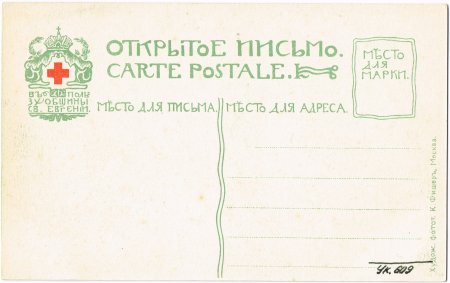 ОТКРЫТОЕ ПИСЬМО.
CARTE POSTALE.
ВЪ ПОЛЬЗУ ОБЩИНЫ
СВ. ЕВГЕНІИ.
МѢСТО
ДЛЯ
МАРКИ.
МѢСТО ДЛЯ ПИСЬМА.
МѢСТО ДЛЯ АДРЕСА.
Худож. фотот. К. Фишеръ, Москва.
УК. 609